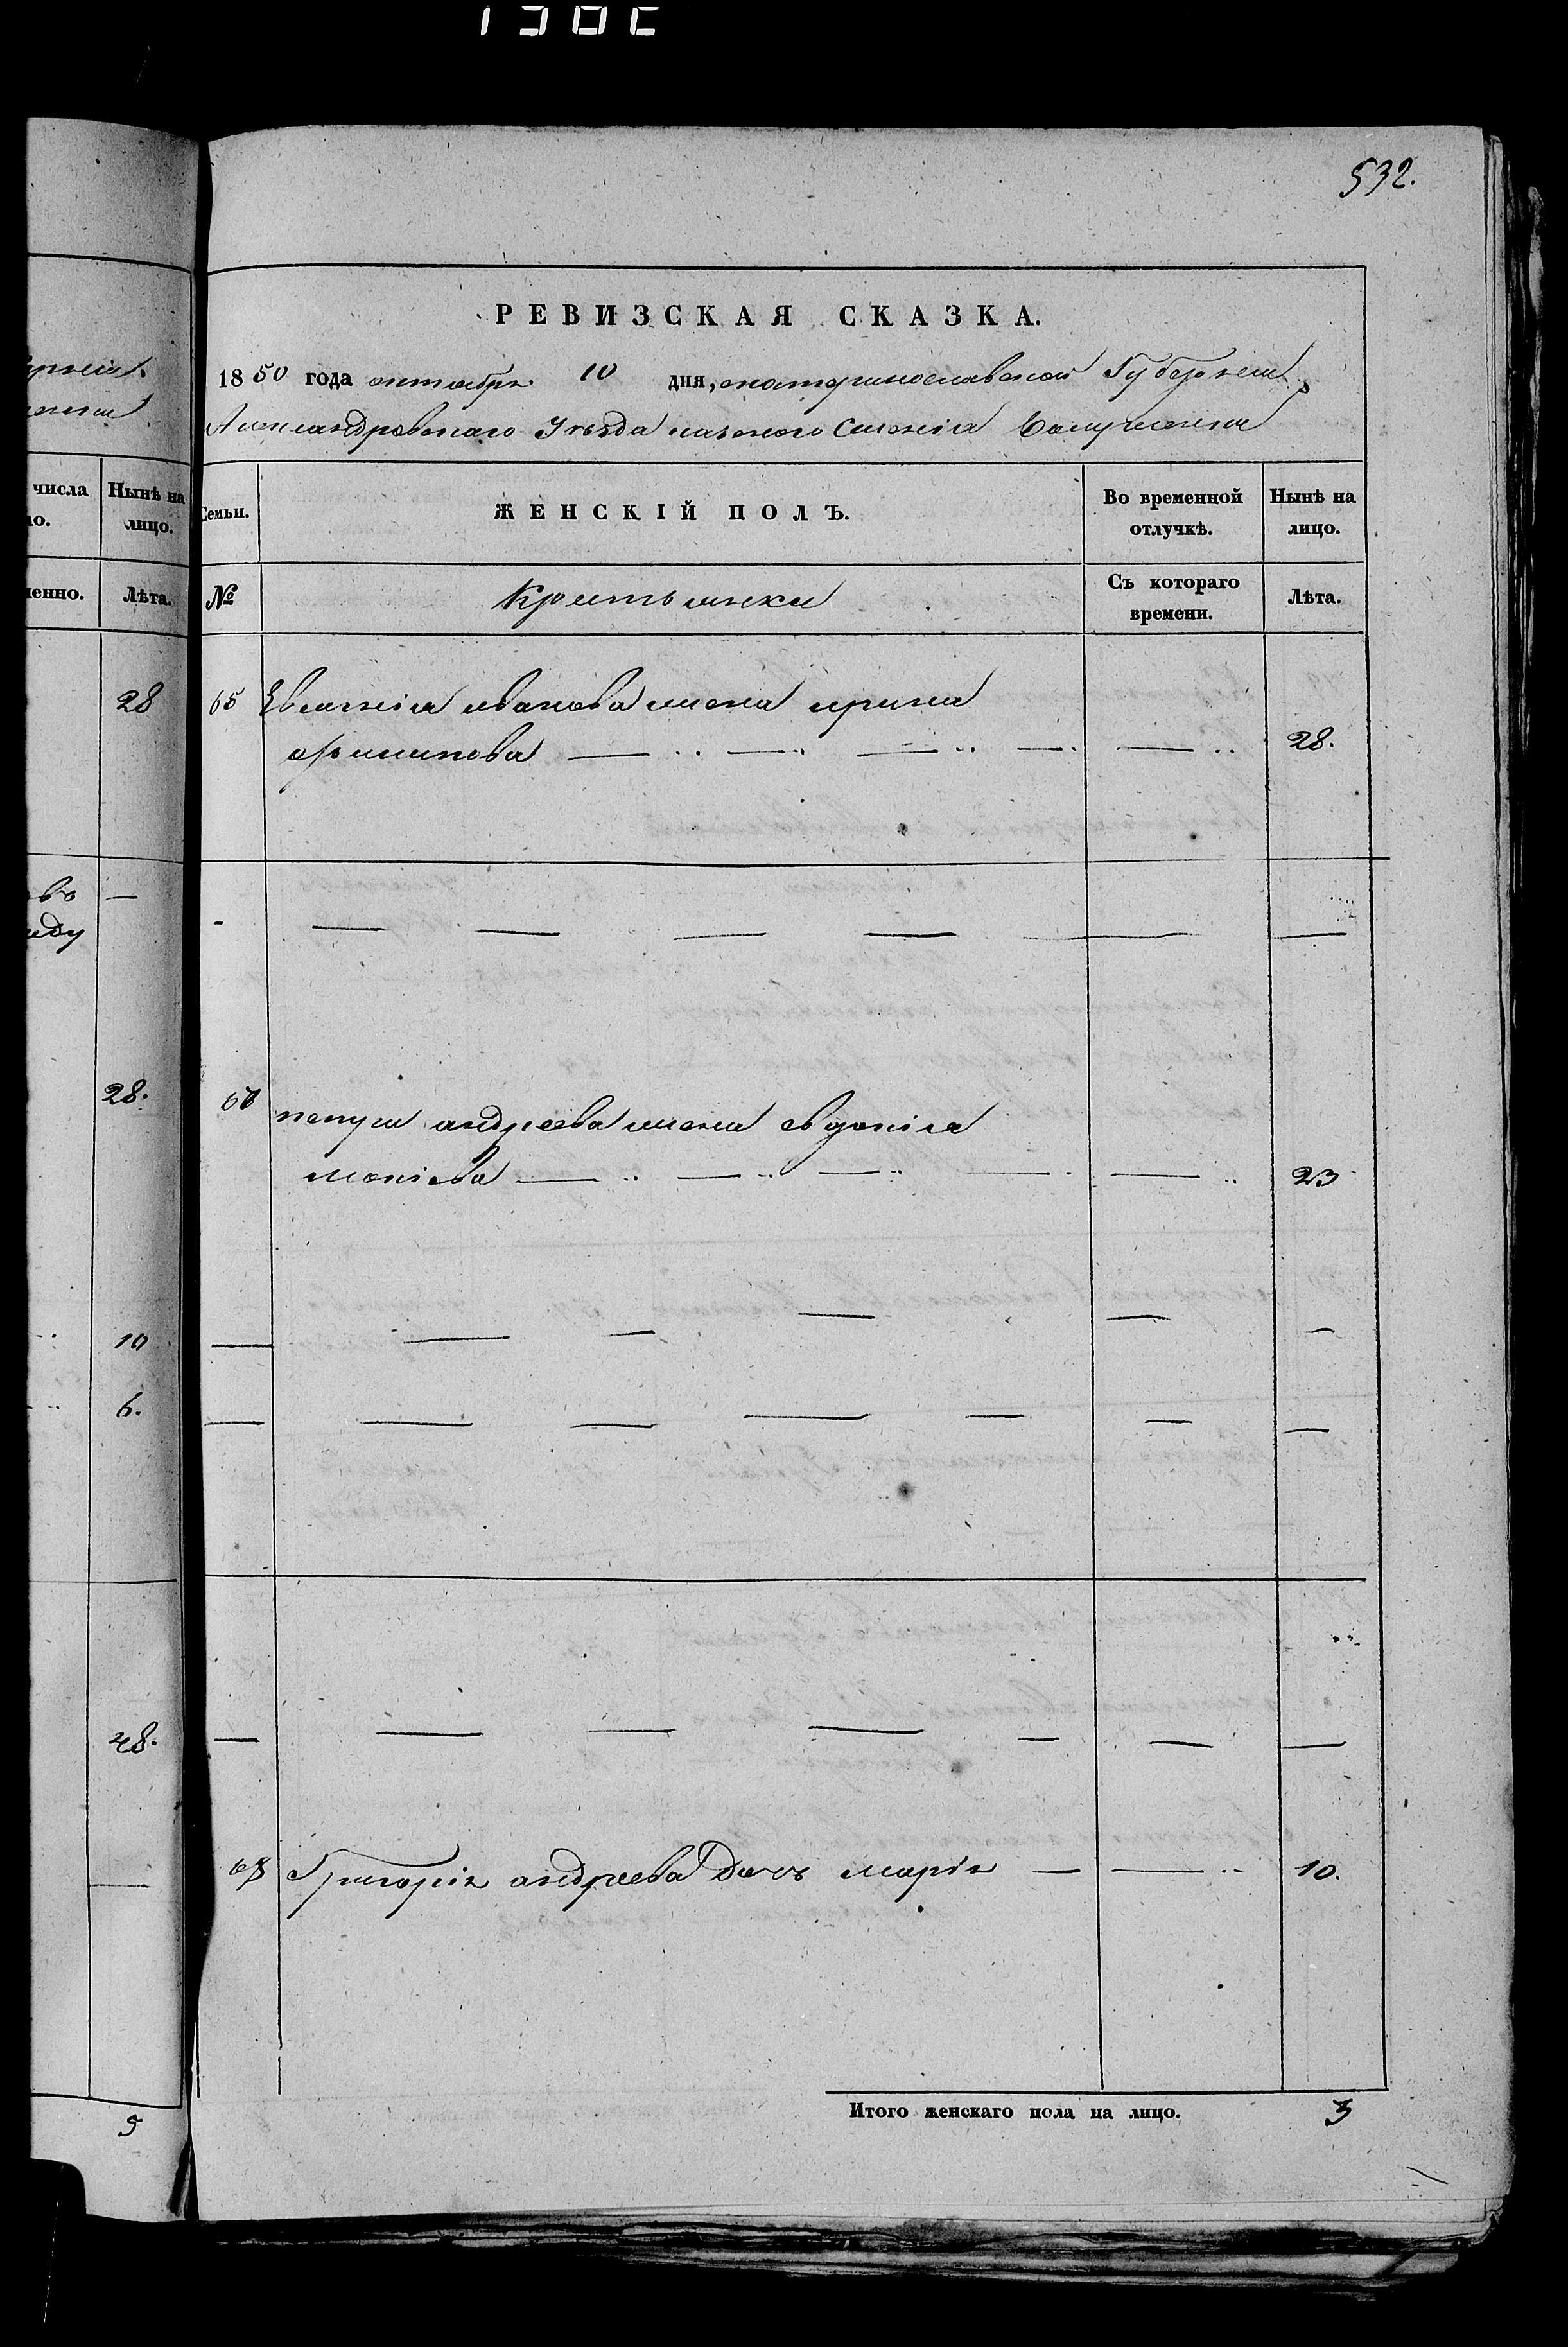 532.
РЕВИЗСКАЯ СКАЗКА.
1850 года октября 10 дня, екатеринославской Губернии
Александровскаго Уезда казеного Селения
числа
Нынѣ на лицо.
Семьи.
ЖЕНСКІЙ ПОЛЪ.
Во временной отлучкѣ.
Нынѣ на лицо.
Лѣта.
№
Крестьянки
Съ котораго времени.
Лѣта.
28
65 иванова жена ирина
филипова — — — — — 28.
28.
67 андреева жена евдокія
23
10
6.
48.
68 Григорія андреева Дочь марія — — 10.
5
Итого женскаго пола на лицо. 3